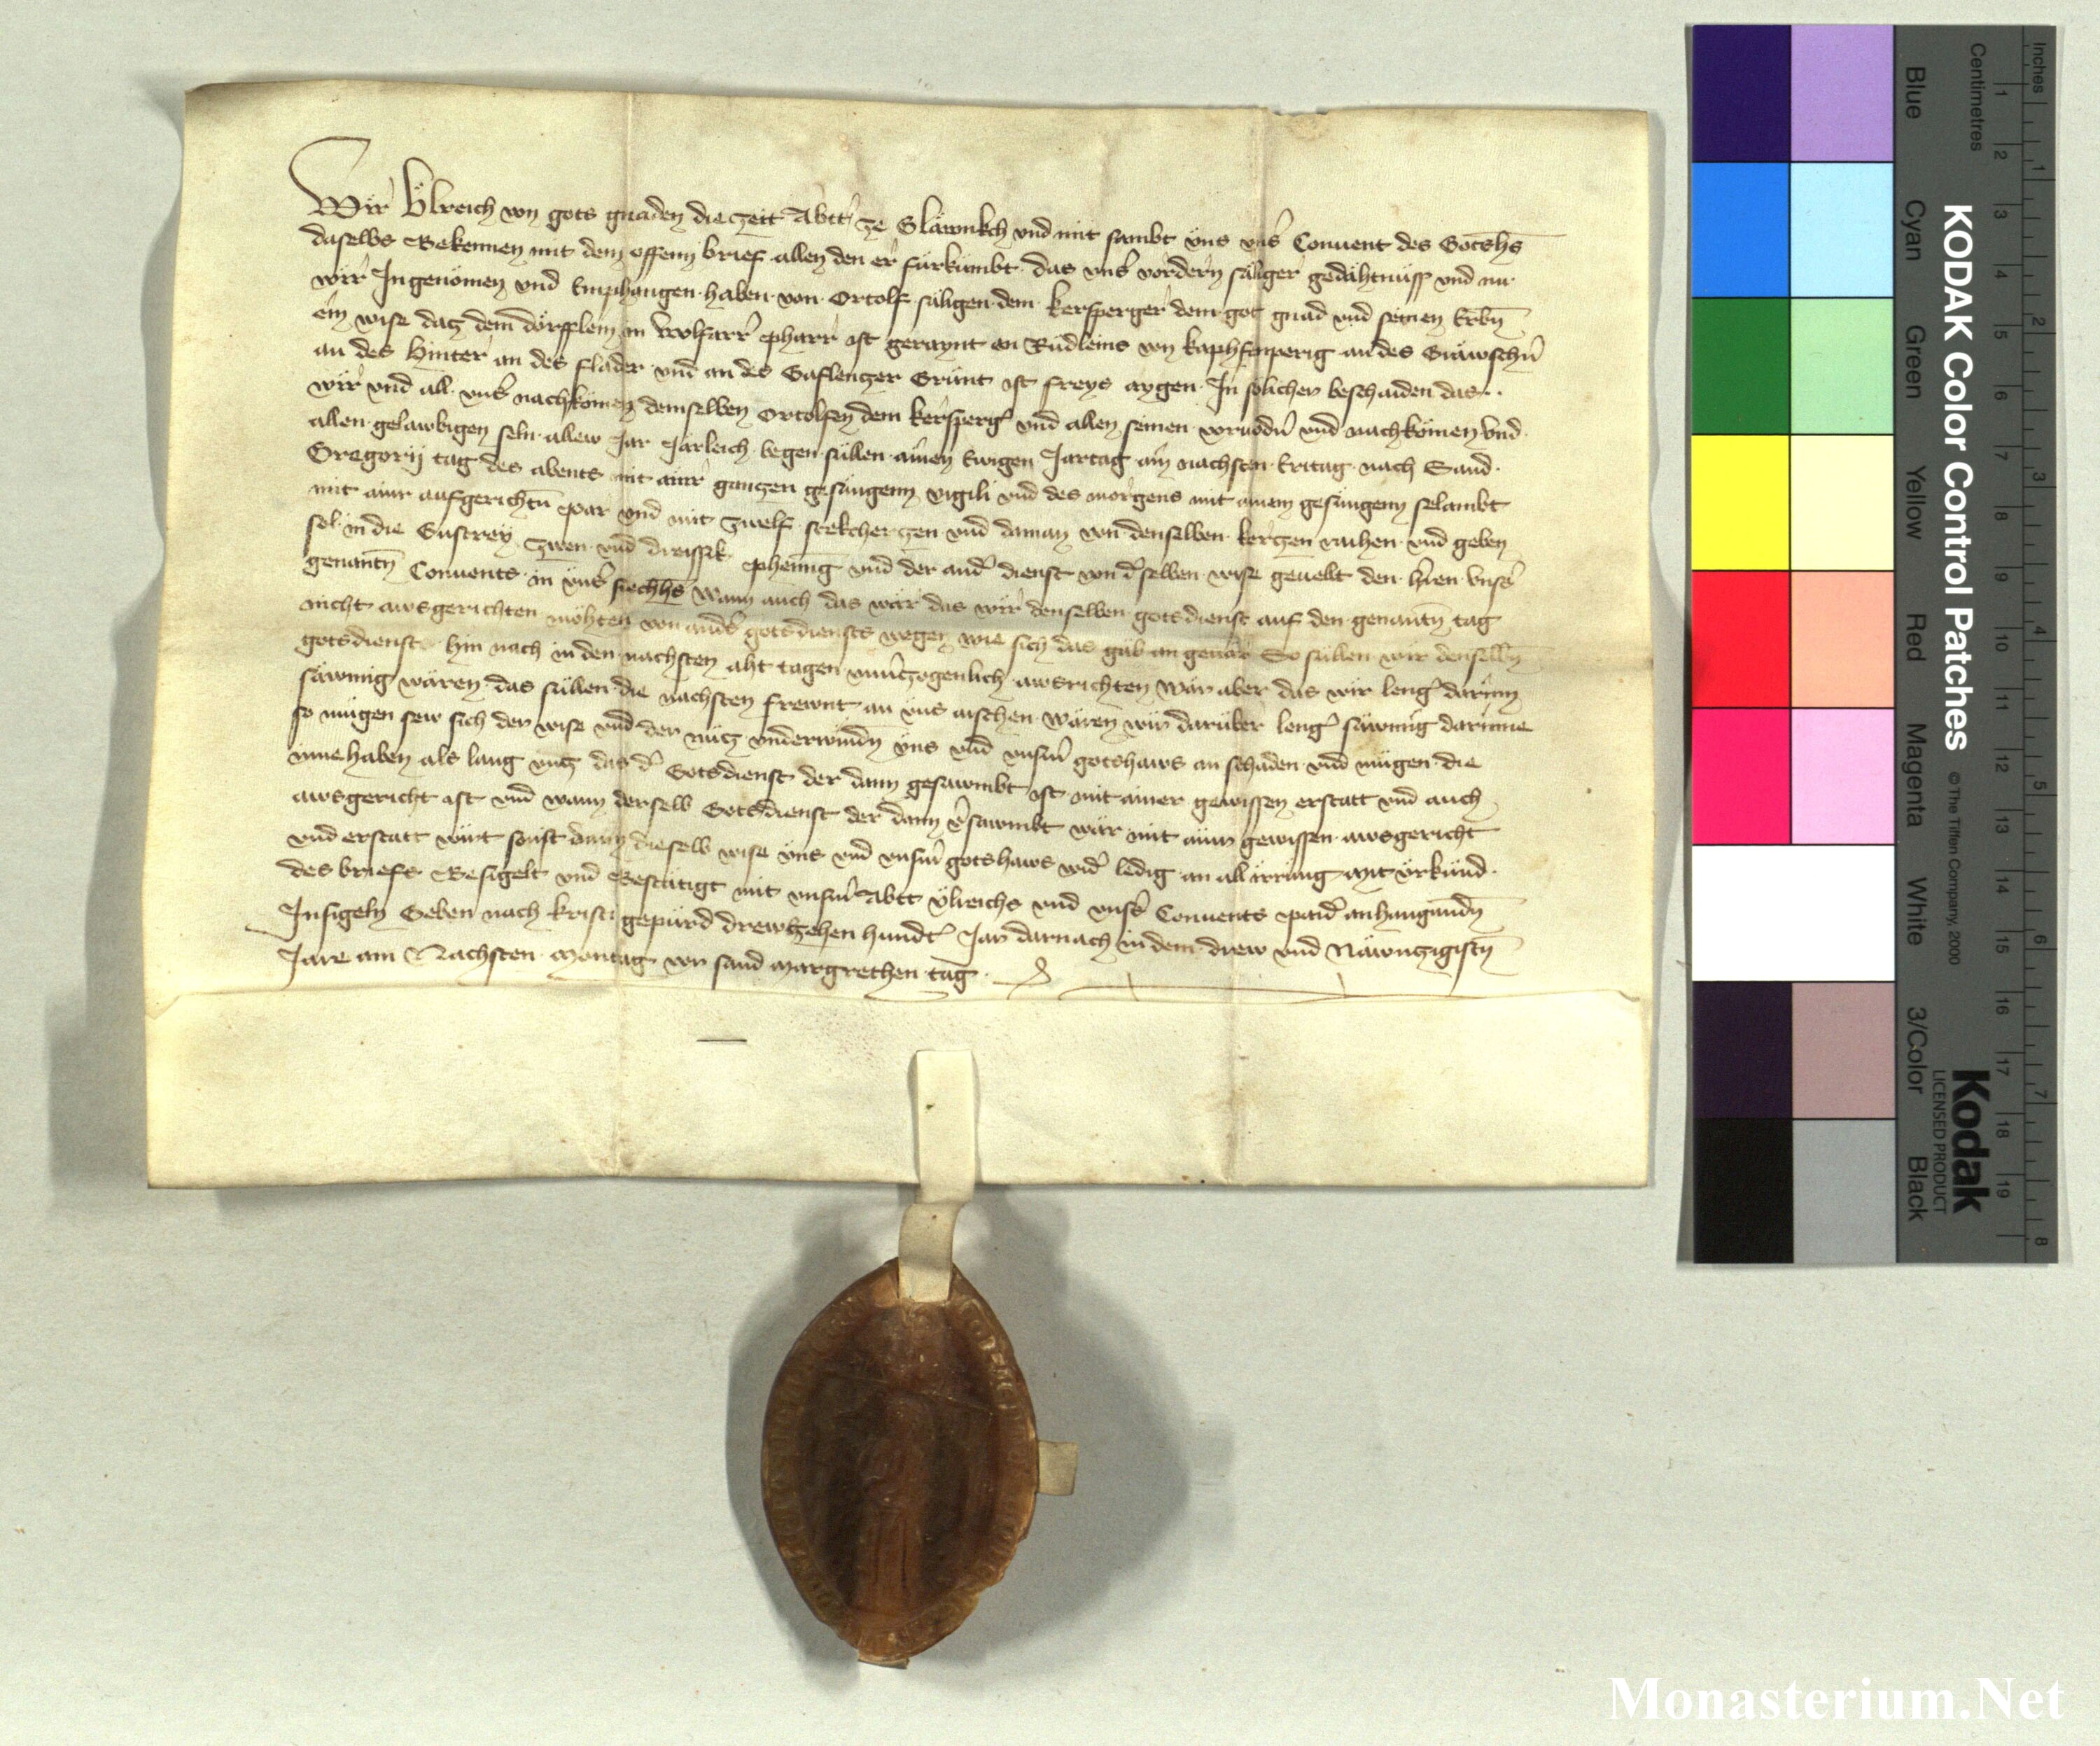 Wir Ůlreich von gots gnaden die zeit Abtt ze Gläwnikch vnd mit sambt vns vnẜ Conuent des Gotshs
daselbs Bekennen mit dem offenn brief allen den er fürkümbt das vnẜ vordern säliger gedähtnüss vnd nu
wir Ingenömen vnd Emphangen haben von Ortolf säligen dem kersperger dem got gnad vnd seinen Erbn̄
ein wise datz dem dörfflein in Wolfarr pharr ist geraynt an Rüdleins von kaphfenperig an des
an des Hinter an des flader vnd an des Gaflenczer Grünt ist freys aygen In solicher beschaiden das
wir vnd all vnẜ nachkömen demselben Ortolfen dem kersperg̛ vnd allen seinen voruodn̄ vnd nachkömen Vnd
allen gelawbigen seln allew Jar Järleich begen süllen ainen Ewigen Jartag am nachsten Eritag nach Sand
Gregorij tag des abents mit ainr ganczen gesüngenn vigili vnd des morgens mit ainem gesüngenn selambt
mit ainr aufgerichtn̄ par vnd mit zwelf stekcherczen vnd daman von denselben kerczen raihen vnd geben
sol in die Gustrey zwen vnd dreissik phening vnd der and̛ dienst von d̛selben wise geuellt den hren vnẜ
genantn̄ Conuents in vnẜ siechhs Wann auch das wär das wir denselben gotsdienst auf den genantn̄ tag
nicht awsgerichten möhten von andẜ gotsdiensts wegen wie sich das gäb an geuär So süllen wir denselbn̄
gotsdienst hin nach in den nachsten aht tagen vnuerczogenlich awsrichten Wär aber das wir leng̛ darinn
säwmig wären das süllen die nachsten frewnt an vns aischen Wären wir darüber leng̛ säwmig darinne
so mügen sew sich der wise vnd der nücz vnderwindn̄ vns vnd vnsm̄ gotshaws an schaden vnd mügen die
innehaben als lang vncz das d̛ Gotsdienst der dann gesawmbt ist mit ainer gewissen erstatt vnd auch
awsgericht ist vnd wann derselb Gotsdienst der dann v̛sawmbt wär mit ainr gewissen awsgericht
vnd erstatt würt so ist dann dieselb wise vns vnd vnsm̄ gotshaws wid̛ ledig an all irrüng Mit vrkünd
des briefs Besigelt vnd Bestätigt mit vnsm̄ Abtt Vlreichs vnd vnsẜ Conuents paid̛ anhangundn̄
Insigeln Geben nach kristi gepürd drewtzehen hundt̛ Jar darnach in dem drew vnd Näwnczigistn̄
Jare am Nachsten Montag vor sand Margrethen tag
KODAK Color Control Patches © The Tiffen Company, 2000
Kodak
LICENSED PRODUCT
Blue Cyan Green Yellow Red Magenta White 3/Color Black
Centimetres 1 2 3 4 5 6 7 8 9 10 11 12 13 14 15 16 17 18 19
Inches 1 2 3 4 5 6 7 8
Monasterium.Net